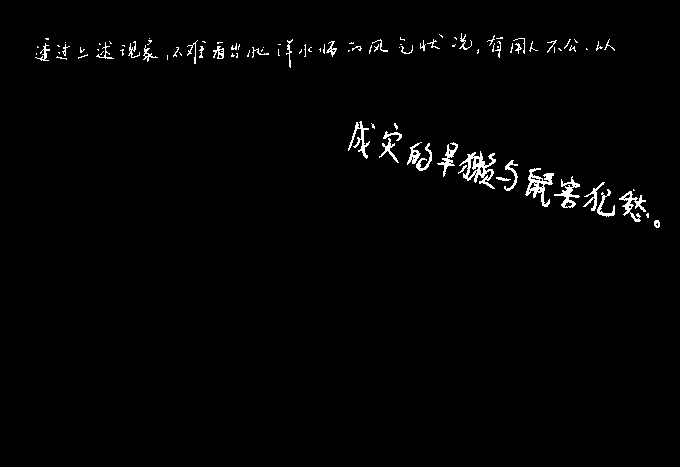 透过上述现象,不难看出北洋水师的风气状况,有用人不公、以
成灾的旱獭与鼠害犯愁。